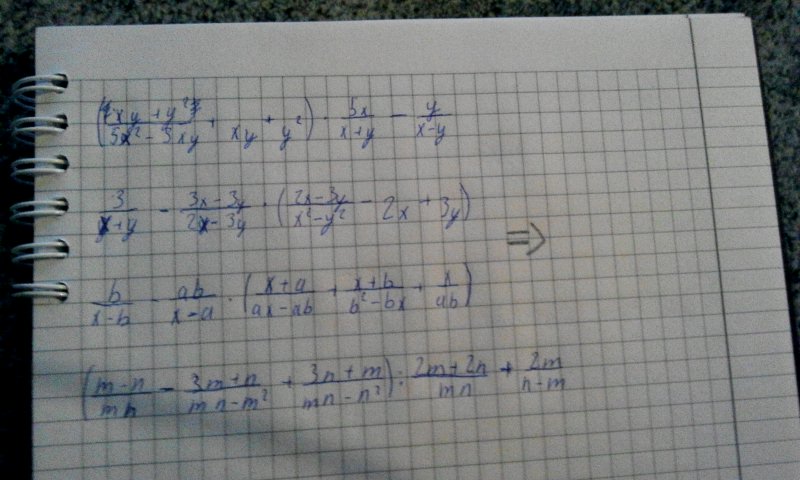 (xy + y²)/(5x² - 5xy) + xy + y²) · 5x/(x+y) - y/(x-y)
3/(x+y) - (3x - 3y)/(2x - 3y) · ((2x - 3y)/(x² - y²) - 2x + 3y)
⇒
b/(x-b) - ab/(x-a) · ((x+a)/(ax-ab) + (x+b)/(b²-bx) + x/(ab))
((m-n)/(mn) - (3m+n)/(mn-m²) + (3n+m)/(mn-n²)) : (2m+2n)/(mn) + 2m/(n-m)